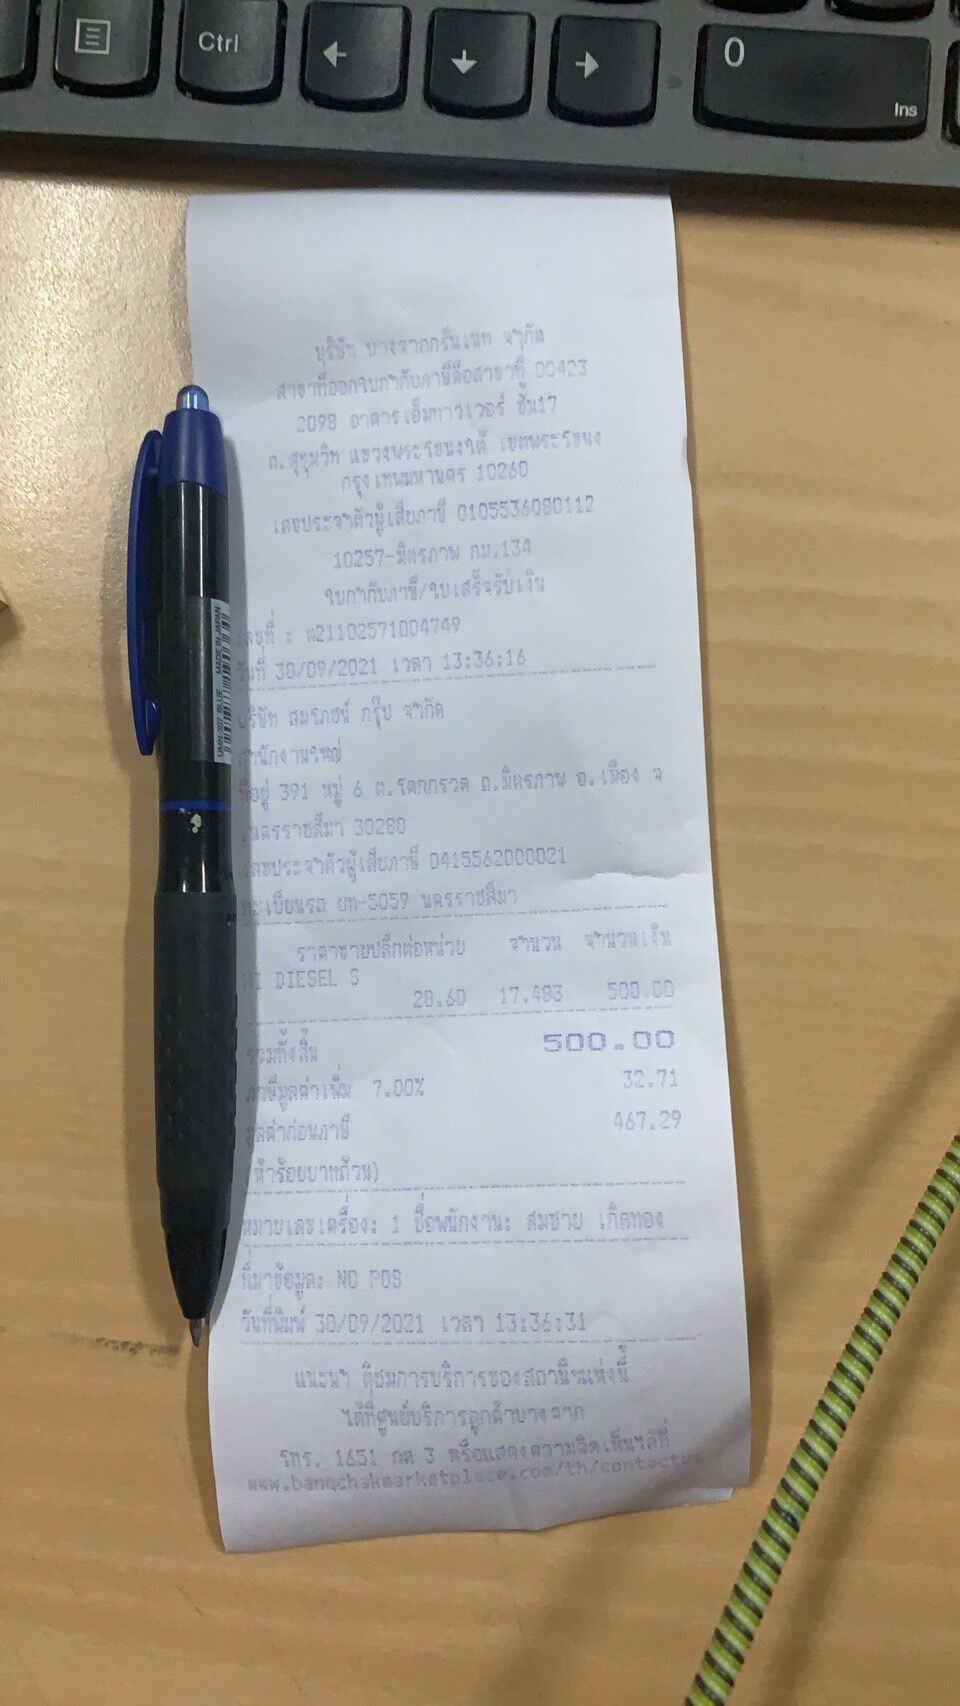 Ctrl
0
Ins
บริษัท บางจากกรีนเนท จำกัด
สาขาที่ออกใบกำกับภาษีคือสาขาที่ 00423
2098 อาคารเอ็มทาวเวอร์ ชั้น17
ถ.สุขุมวิท แขวงพระโขนงใต้ เขตพระโขนง
กรุงเทพมหานคร 10260
เลขประจำตัวผู้เสียภาษี 0105536080112
10257-มิตรภาพ กม.134
ใบกำกับภาษี/ใบเสร็จรับเงิน
เลขที่ : ต21102571004749
วันที่ 30/09/2021 เวลา 13:36:16
บริษัท สมโภชน์ กรุ๊ป จำกัด
สำนักงานใหญ่
ที่อยู่ 391 หมู่ 6 ต.โคกกรวด ถ.มิตรภาพ อ.เมือง จ
.นครราชสีมา 30280
เลขประจำตัวผู้เสียภาษี 0415562000021
ทะเบียนรถ ยท-5059 นครราชสีมา
ราคาขายปลีกต่อหน่วย จำนวน จำนวนเงิน
HI DIESEL S
28.60 17.483 500.00
รวมทั้งสิ้น 500.00
ภาษีมูลค่าเพิ่ม 7.00% 32.71
มูลค่าก่อนภาษี 467.29
(ห้าร้อยบาทถ้วน)
หมายเลขเครื่อง: 1 ชื่อพนักงาน: สมชาย เกิดทอง
ที่มาข้อมูล: NO POS
วันที่พิมพ์ 30/09/2021 เวลา 13:36:31
แนะนำ ติชมการบริการของสถานีฯแห่งนี้
ได้ที่ศูนย์บริการลูกค้าบางจาก
โทร. 1651 กด 3 หรือแสดงความคิดเห็นได้ที่
www.bangchakmarketplace.com/th/contactus
UMN-307 BLUE MADE IN JAPAN